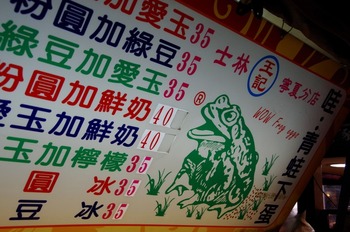 粉圓加愛玉35
粉圓加綠豆35
綠豆加愛玉35
粉圓加鮮奶40
愛玉加鮮奶40
愛玉加檸檬35
圓 冰35
豆 冰35
士林
王記
寧夏分店
®
WOW Frog eggs
哇‧青蛙下蛋